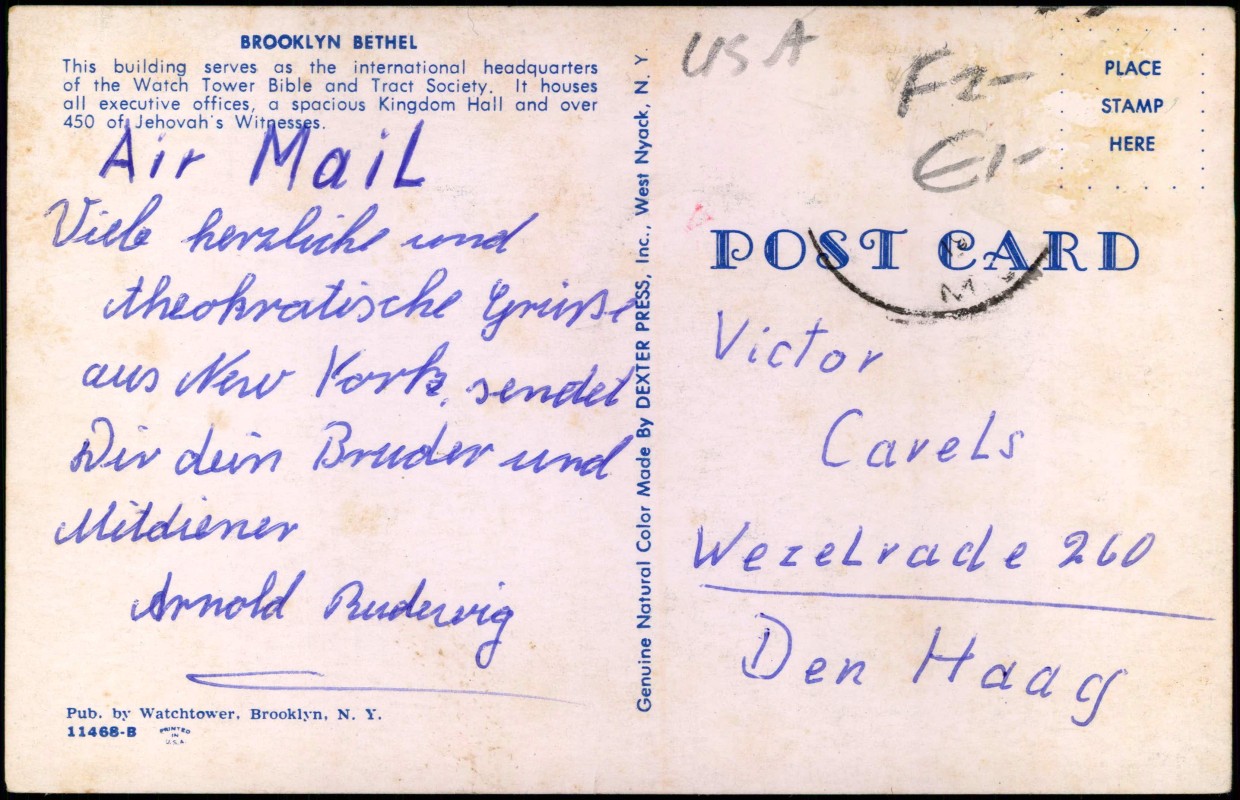 BROOKLYN BETHEL
This building serves as the international headquarters
of the Watch Tower Bible and Tract Society. It houses
all executive offices, a spacious Kingdom Hall and over
450 of Jehovah's Witnesses.
Air Mail
Viele herzliche und
theokratische Grüße
aus New York, sendet
Dir dein Bruder und
Mitdiener
Arnold Ruderwig
Pub. by Watchtower, Brooklyn, N. Y.
11468-B
PRINTED
IN
U.S.A
Genuine Natural Color Made By DEXTER PRESS, Inc., West Nyack, N. Y.
USA
F2-
E1-
PLACE
STAMP
HERE
POST CARD
Victor
Carels
Wezelrade 260
Den Haag